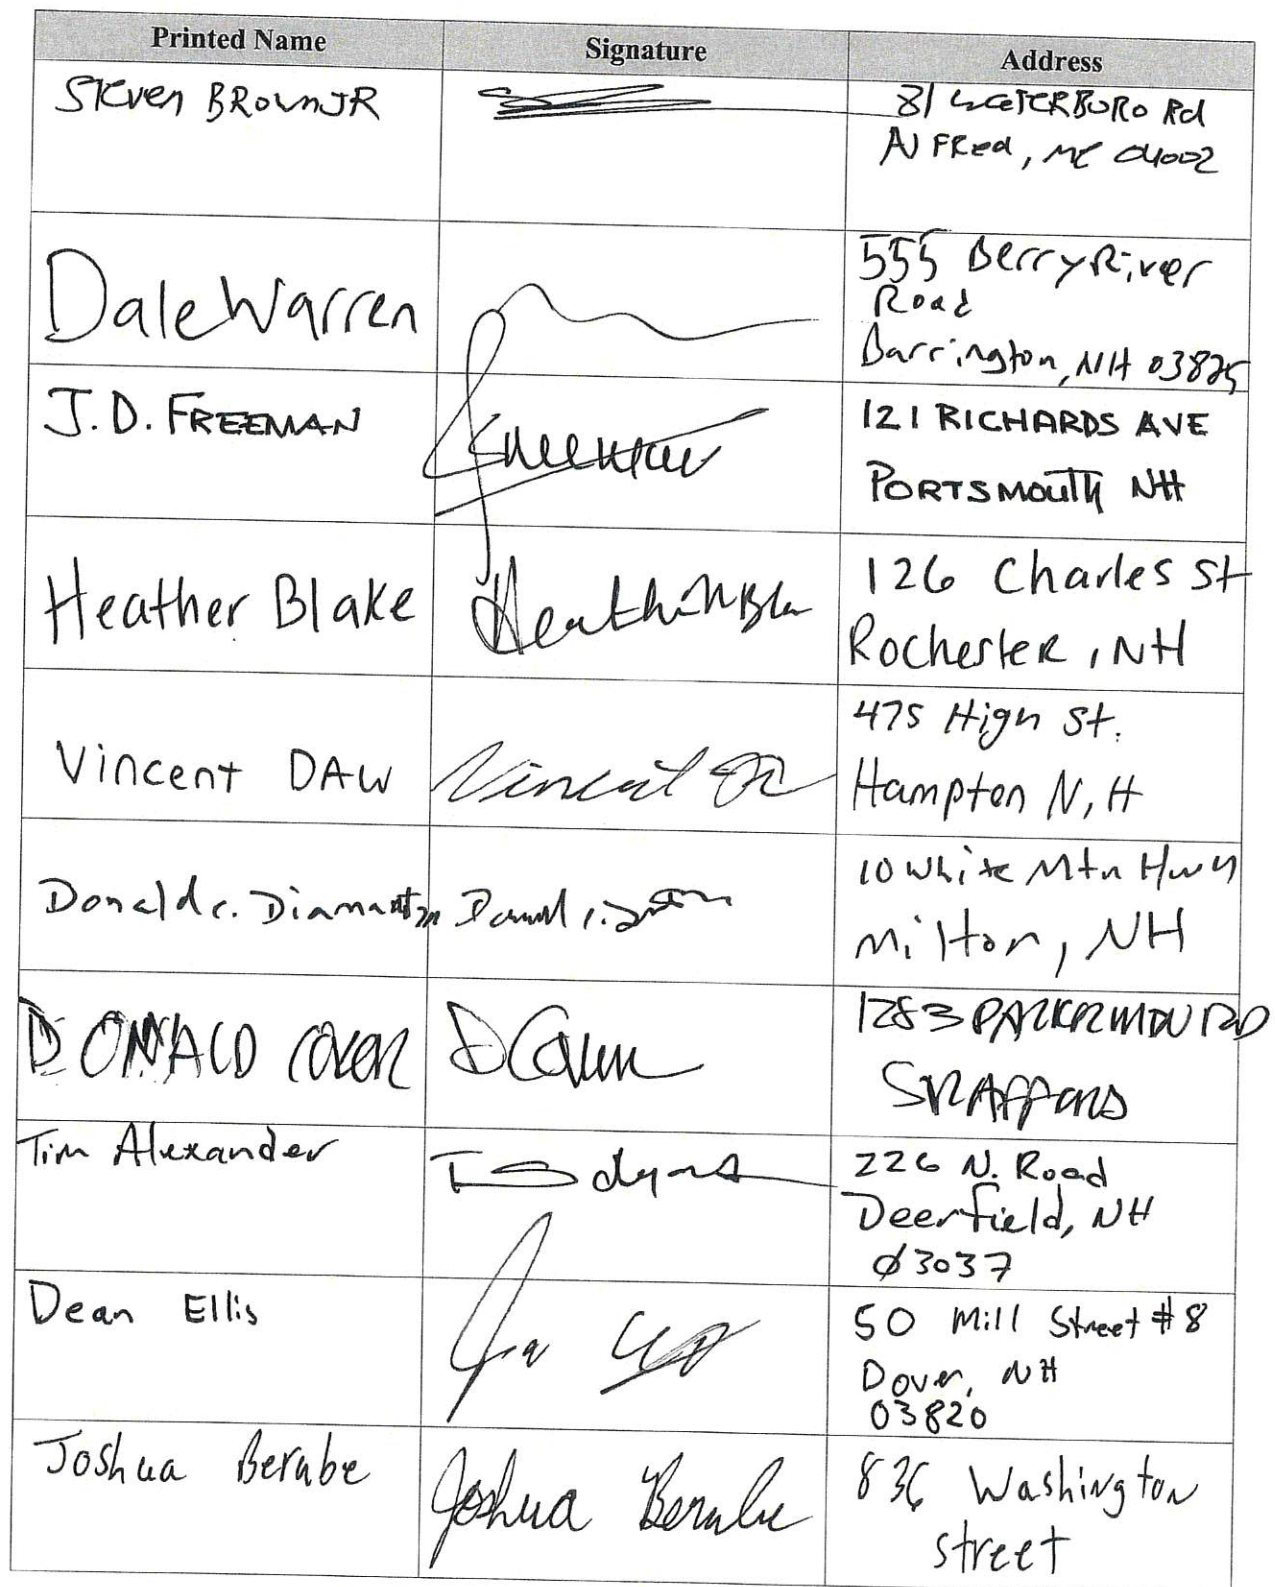 Printed Name Signature Address
Steven Brown JR
81 WATERBORO Rd
Alfred, ME 04002
Dale Warren
555 Berry River
Road
Barrington, NH 03825
J.D. FREEMAN
121 RICHARDS AVE
PORTSMOUTH NH
Heather Blake
126 Charles St
Rochester, NH
Vincent DAW
Vincent
475 High St.
Hampton N,H
Donald c.
10 White Mtn Hwy
Milton, NH
DONALD COVER
1283 RD
STRAFFORD
Tim Alexander
226 N. Road
Deerfield, NH
03037
Dean Ellis
50 Mill Street #8
Dover, NH
03820
Joshua Berube Joshua Berube
836 Washington
street